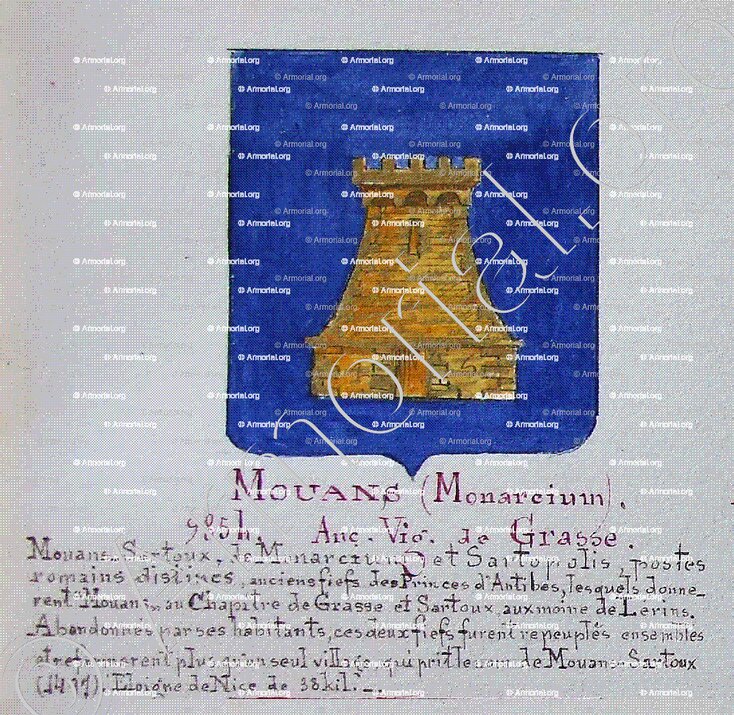 Mouans (Monarcium).
985 h. Anc. Vig. de Grasse.
Mouans Sartoux, de Monarcium et Sartopolis, postes
romains distincs, anciens fiefs des Princes d'Antibes, lesquels donne-
rent Mouans au Chapitre de Grasse et Sartoux aux moine de Lerins.
Abandonnés par ses habitants, ces deux fiefs furent repeuplés ensembles
et ne formerent plus qu'un seul village qui prit le nom de Mouans-Sartoux
Eloigné de Nice de 38 kil.
© Armorial.org